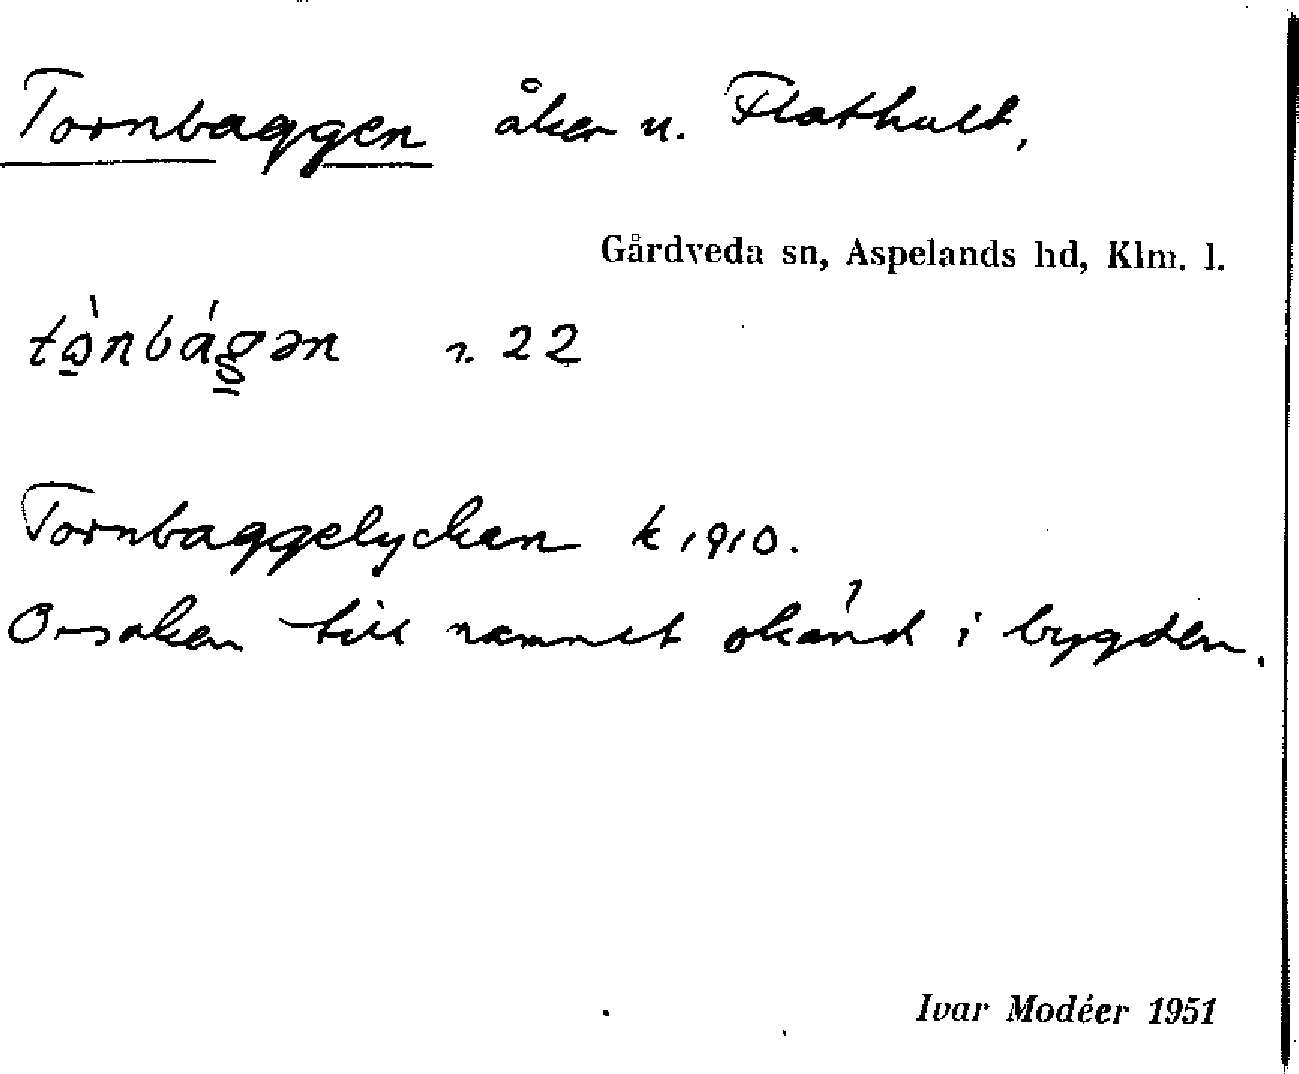 Tornbaggen åker u. Flathult,
Gårdveda sn, Aspelands hd, Klm. l.
tὰnbágən r. 22
Tornbaggelyckan k 1910.
Orsaken till namnet okänd i bygden.
Ivar Modéer 1951